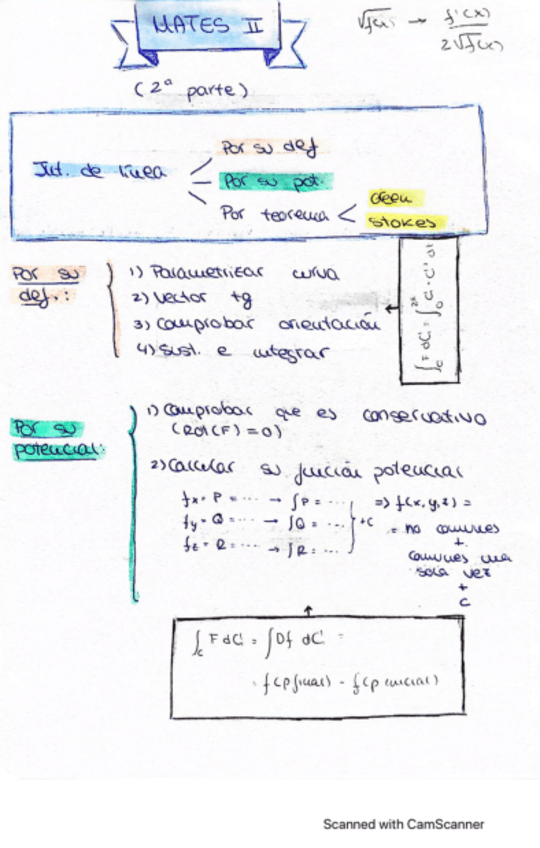 MATES II
√f(x) → f'(x) / 2√f(x)
(2ª parte)
Int. de línea
Por su def
Por su pot.
Por teorema <
Green
Stokes
Por su def.:
1) Parametrizar curva
2) Vector tg
3) Comprobar orientación
4) Sust. e integrar
∫c F dC =
Por su potencial:
1) Comprobar que es conservativo
(Rot(F) = 0)
2) Calcular su función potencial
fx = P = ... → ∫P = ...
fy = Q = ... → ∫Q = ...
fz = R = ... → ∫R = ...
+C
=> f(x,y,z) =
= no comunes
+
comunes una
sola vez
+
C
∫c F dC = ∫Df dC =
= f(p final) - f(p inicial)
Scanned with CamScanner